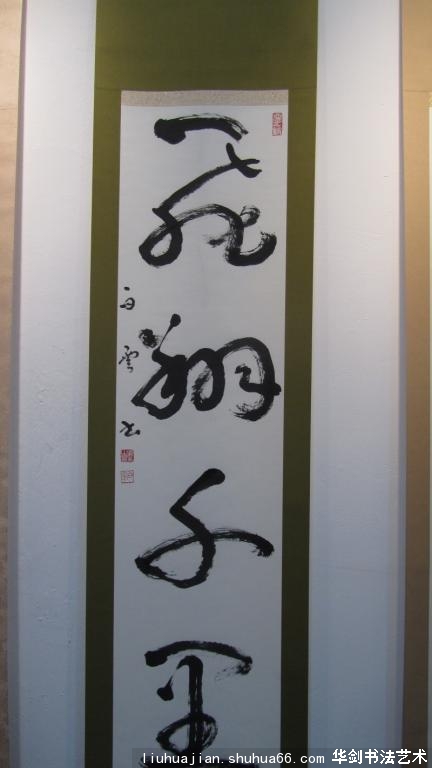 飛翔千
白雲書
liuhuajian.shuhua66.com 华剑书法艺术